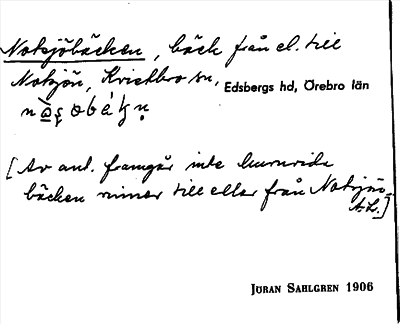 Notsjöbäcken, bäck från el. till
Notsjön, Kvistbro sn, Edsbergs hd, Örebro län
[Av ant. framgår inte huruvida
bäcken rinner till eller från Notsjön.
A.L.]
JÖRAN SAHLGREN 1906